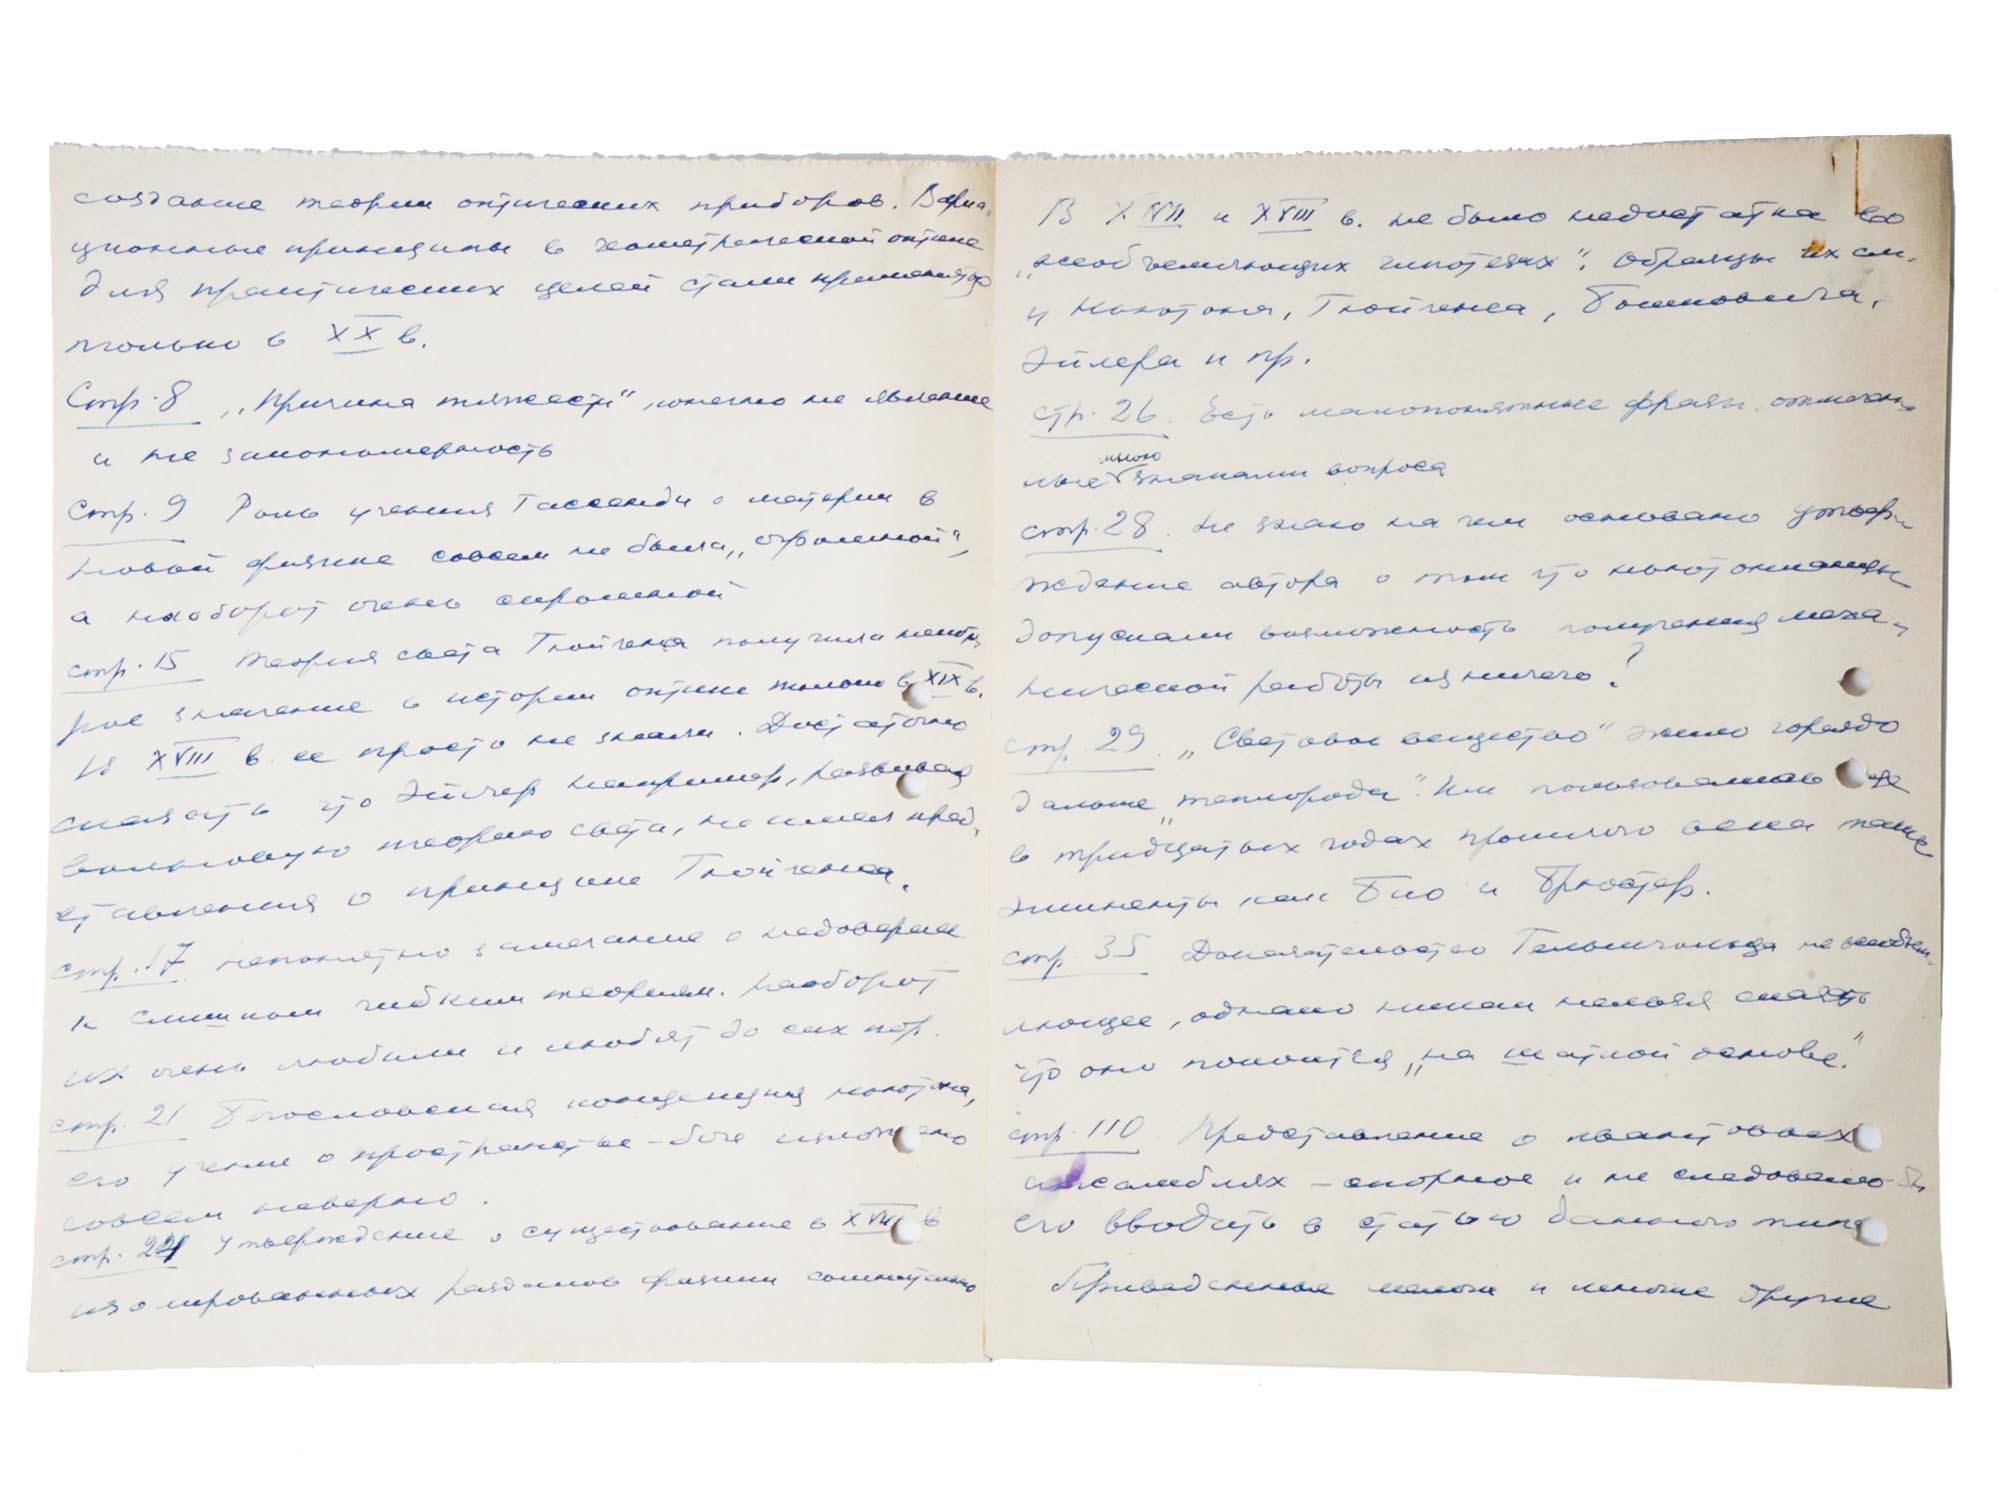 создание теории оптических приборов. Вариа-
ционные принципы в геометрической оптике
для практических целей стали применяться
только в XX в.
Стр. 8 „Причина тяжести“, конечно не явление
и не закономерность
Стр. 9 Роль учения Гассенди о материи в
новой физике совсем не была „огромной“,
а наоборот очень скромной
стр. 15 Теория света Гюйгенса получила некото-
рое значение в истории оптики только в XIX в.
В XVIII в. ее просто не знали. Достаточно
сказать что Эйлер например, развивая
волновую теорию света, не имел пред-
ставления о принципе Гюйгенса.
стр. 17 непонятно замечание о недоверии
к слишком гибким теориям. Наоборот
их очень любили и любят до сих пор.
стр. 21 Богословская концепция Ньютона,
его учение о пространстве – боге изложено
совсем неверно.
стр. 24 Утверждение о существовании в XVIII в
изолированных разделов физики сомнительно
В XVII и XVIII в. не было недостатка во
„всеобъемлющих гипотезах“. Образцы их см.
у Ньютона, Гюйгенса, Бошковича,
Эйлера и пр.
стр. 26. Есть малопонятные фразы, отмечен-
ные мною знаками вопроса
стр. 28. Не знаю на чем основано утвер-
ждение автора о том что ньютонианцы
допускали возможность получения меха-
нической работы из ничего?
стр. 29. „Световое вещество“ жило гораздо
дольше „теплорода“. Им пользовались еще
в тридцатых годах прошлого века такие
эминенты как Био и Брюстер.
стр. 35 Доказательство Гельмгольца не всеобъем-
лющее, однако никак нельзя сказать
что оно покоится „на шаткой основе.“
стр. 110 Представление о квантовых
ансамблях – спорное и не следовало-бы
его вводить в статью данного типа
Приведенные мелочи и многие другие